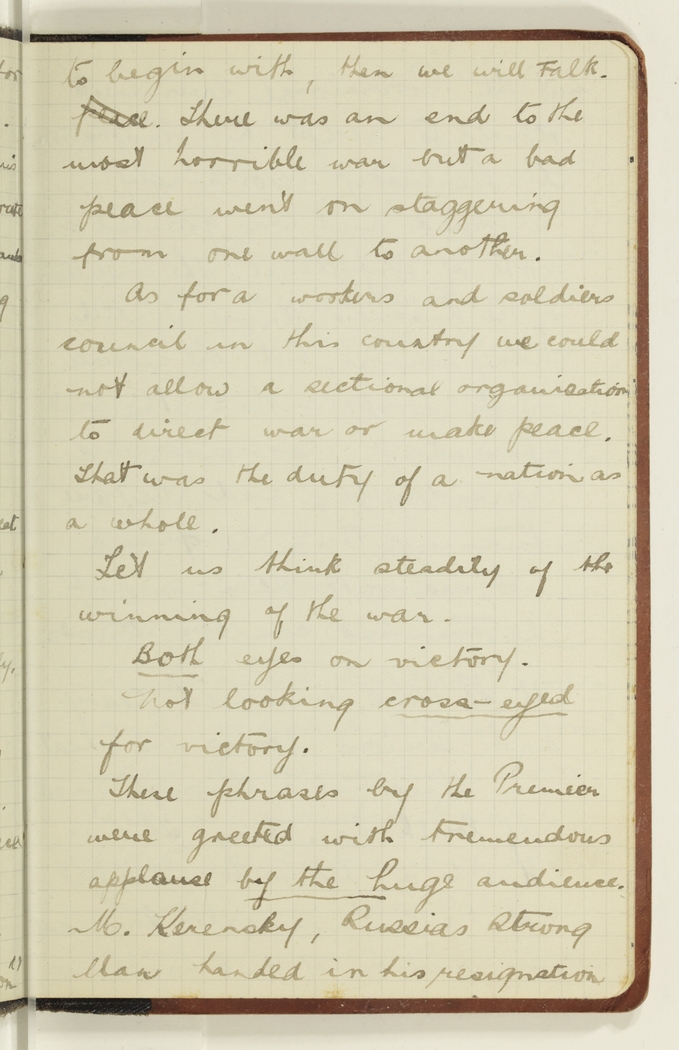 to begin with, then we will talk.
peace. There was an end to the
most horrible war but a bad
peace went on staggering
from one wall to another.
As for a workers and soldiers
council in this country we could
not allow a sectional organisation
to direct war or make peace.
That was the duty of a nation as
a whole.
Let us think steadily of the
winning of the war.
Both eyes on victory.
Not looking cross-eyed
for victory.
These phrases by the Premier
were greeted with tremendous
applause by the huge audience.
M. Kerensky, Russias Strong
Man handed in his resignation